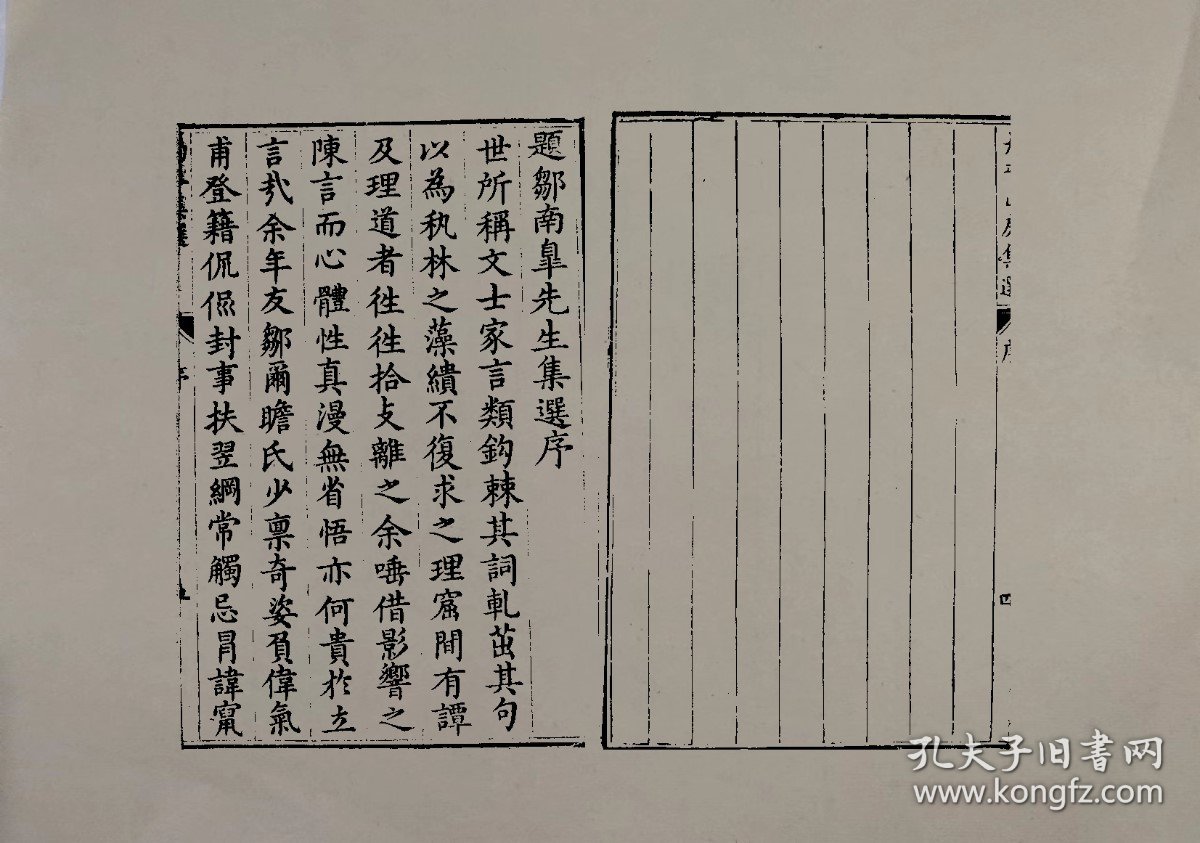 序
四
題鄒南臯先生集選序
世所稱文士家言類鈎棘其詞軋茁其句
以為秇林之藻繢不復求之理窟間有譚
及理道者徃徃拾攴離之余唾借影響之
陳言而心體性真漫無省悟亦何貴於立
言㢤余年友鄒爾瞻氏少稟奇姿負偉氣
甫登籍侃侃封事扶翌綱常觸忌冐諱竄
序
五
孔夫子旧书网
www.kongfz.com